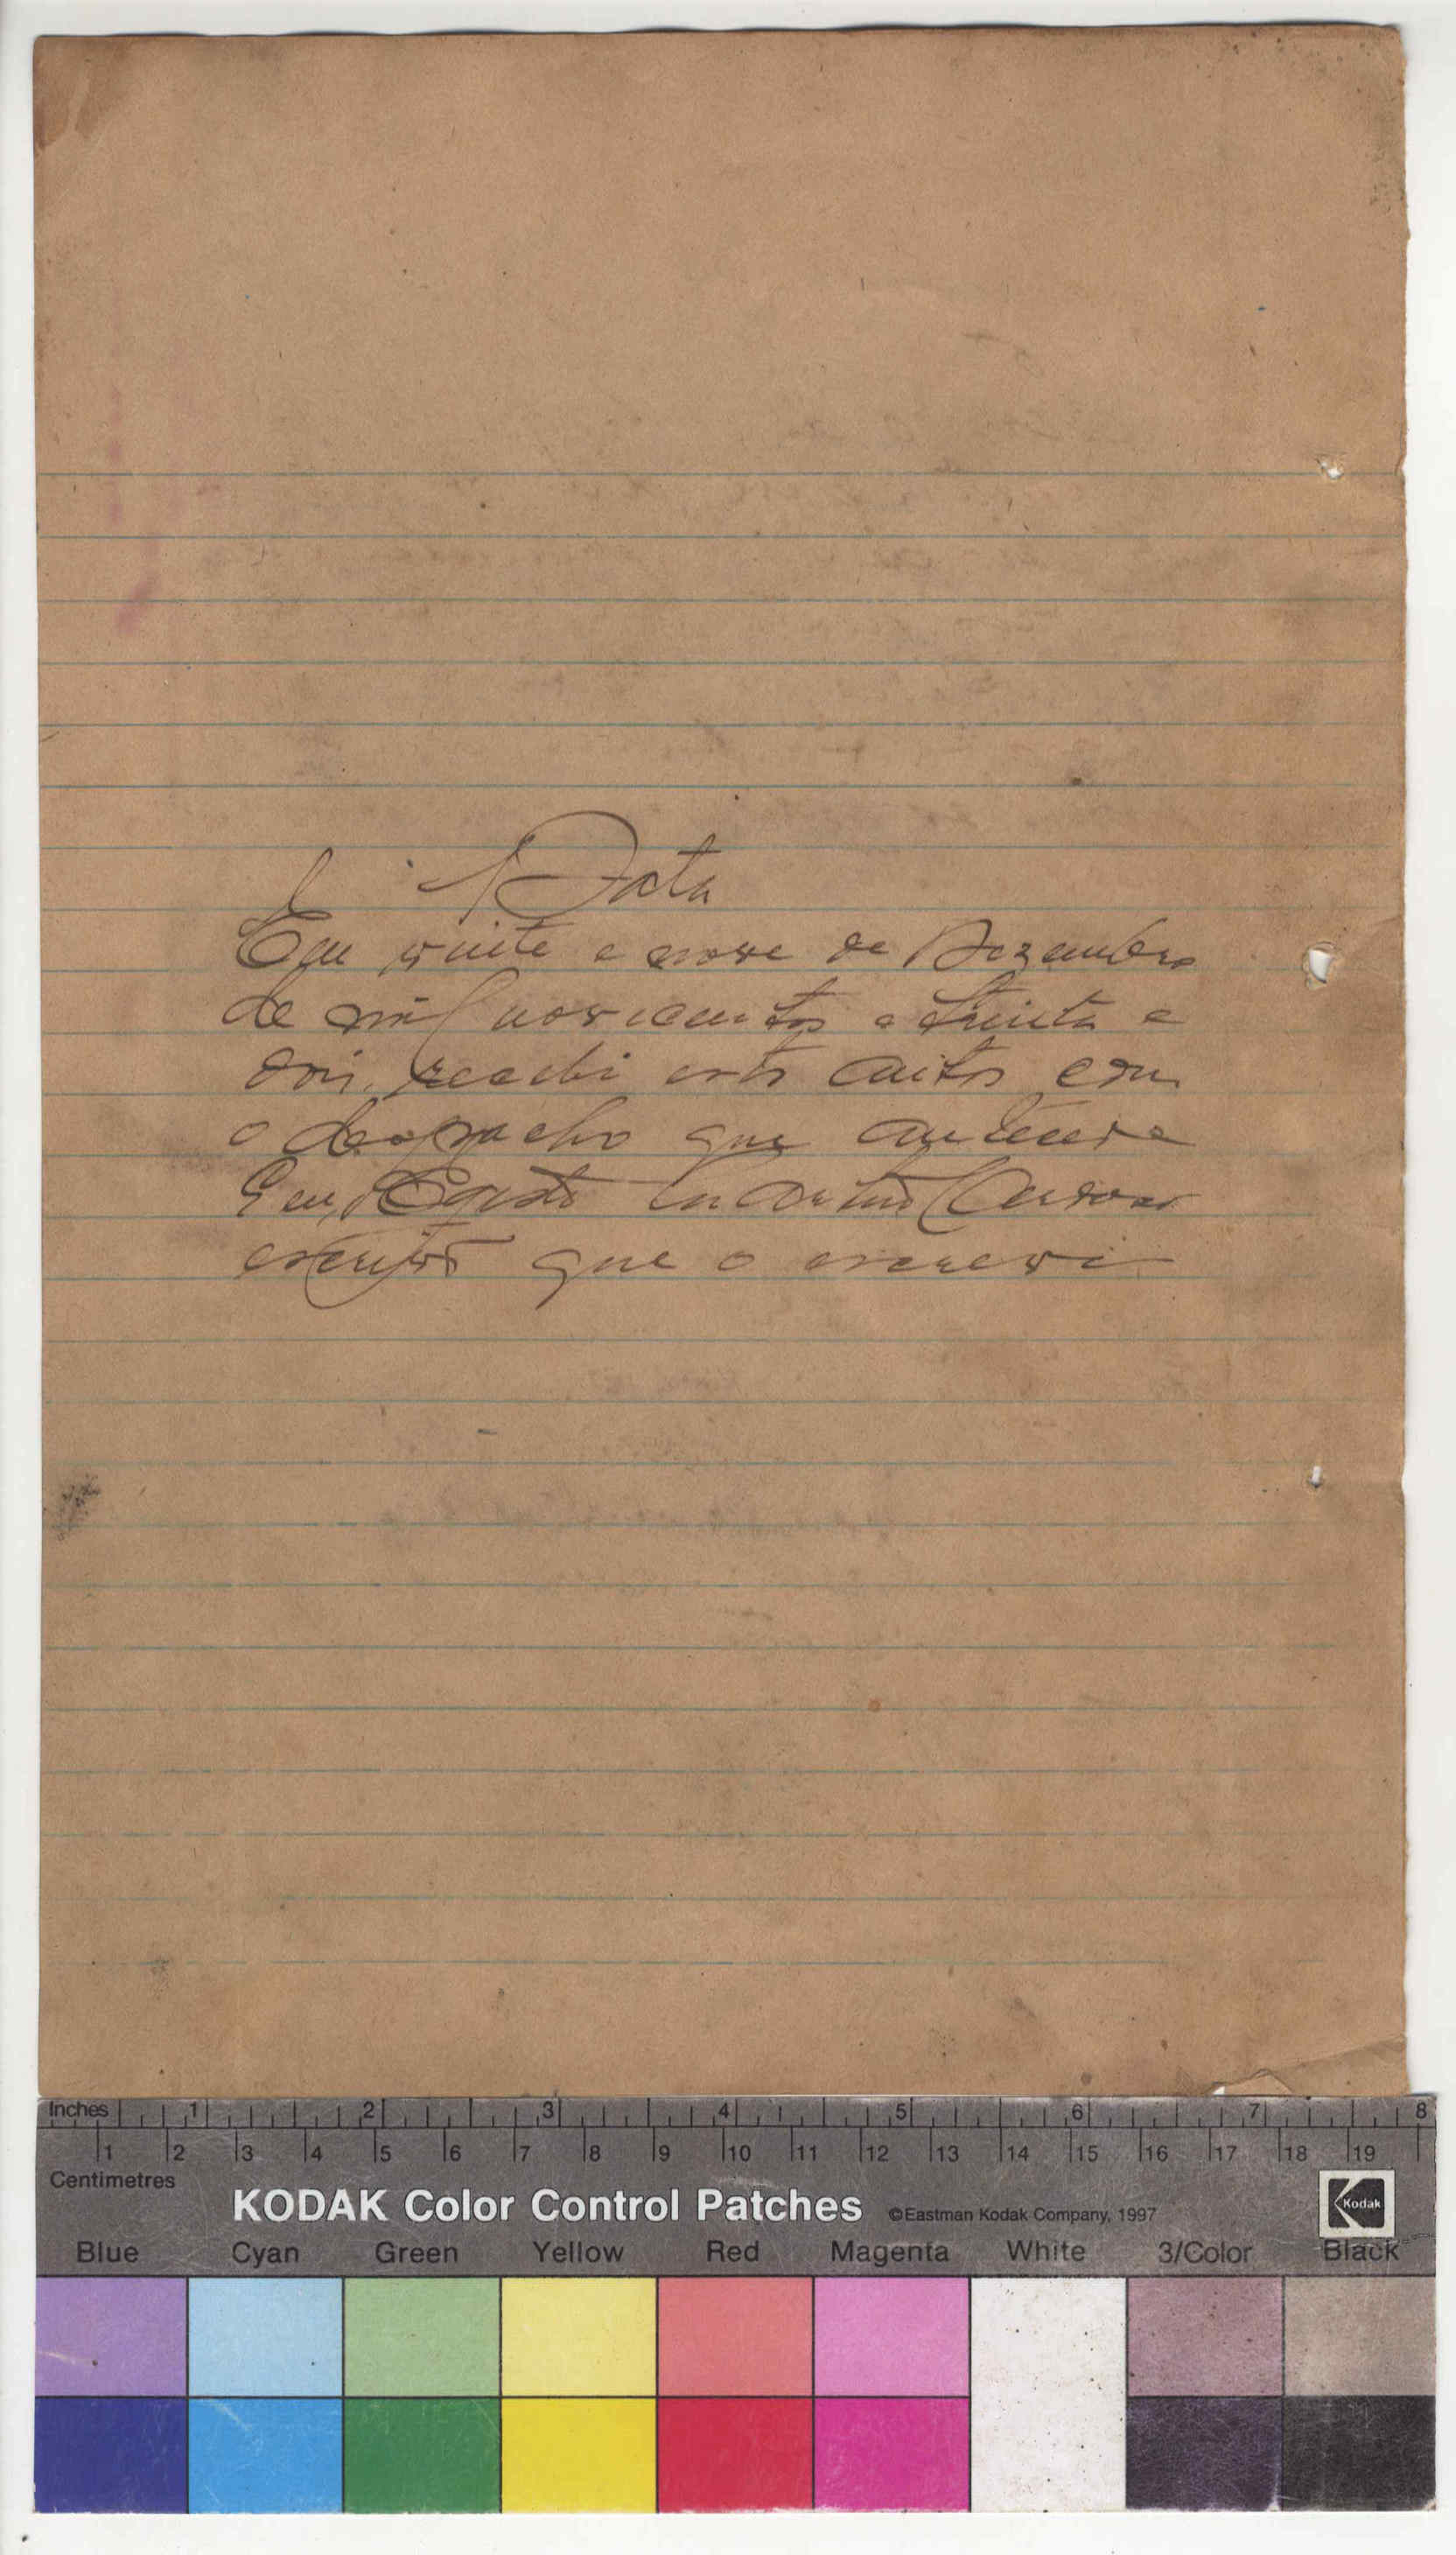 Data
Em vinte e nove de Dezembro
de mil novicentos e trinta e
dois, recebi estes autos com
o despacho que antecede
Eu,
escrivão que o escrevi
Inches 1 2 3 4 5 6 7 8
1 2 3 4 5 6 7 8 9 10 11 12 13 14 15 16 17 18 19
Centimetres
KODAK Color Control Patches ©Eastman Kodak Company, 1997 Kodak
Blue Cyan Green Yellow Red Magenta White 3/Color Black